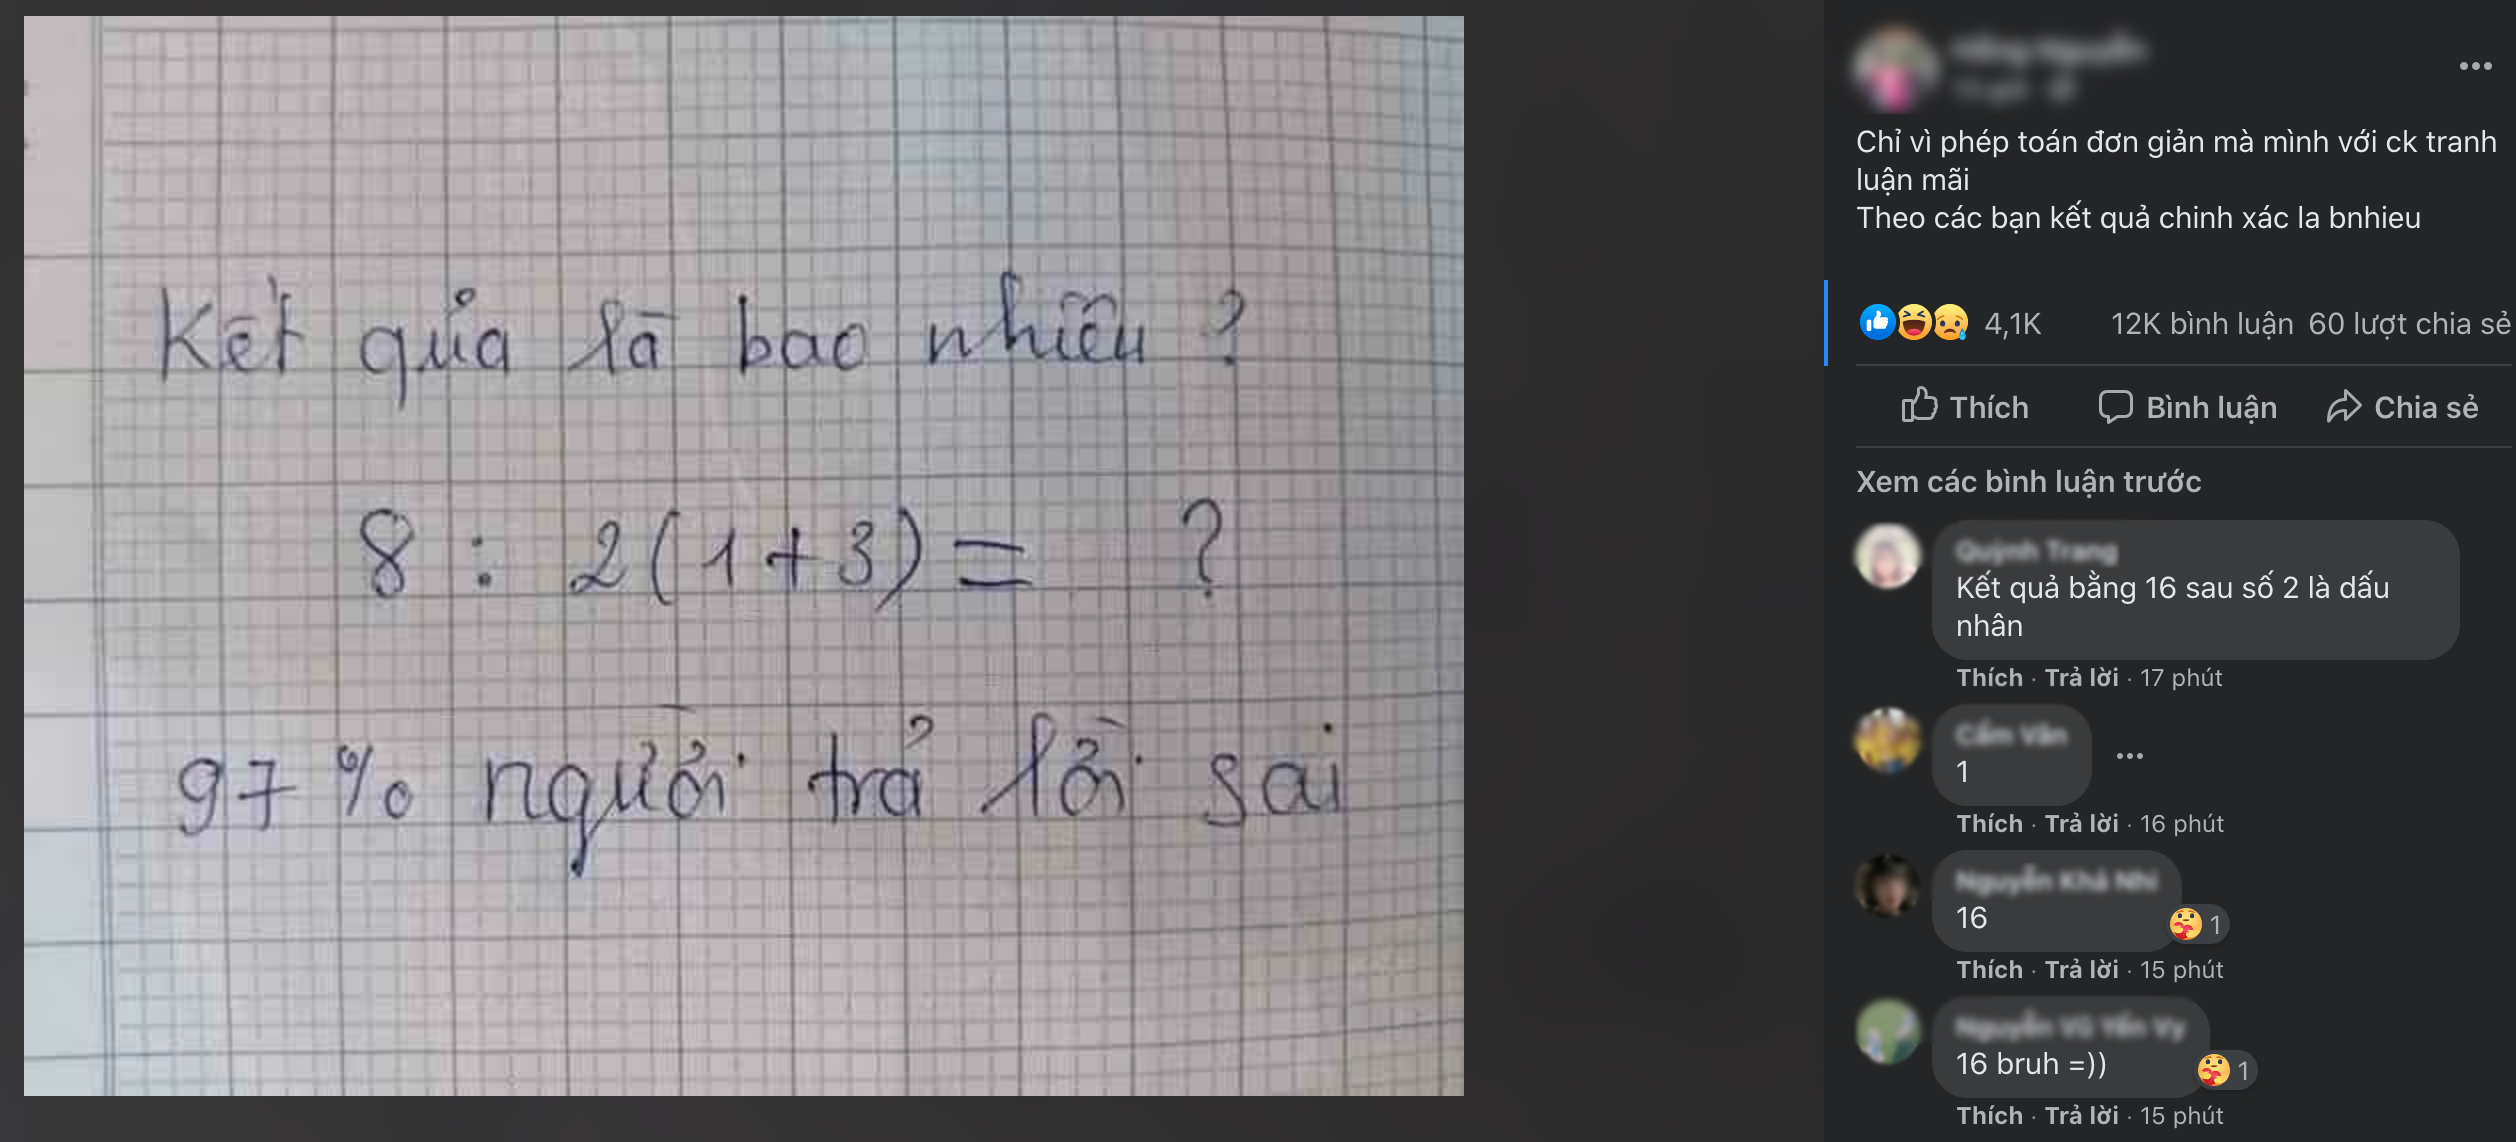 Kết quả là bao nhiêu ?
8 : 2(1+3) = ?
97% người trả lời sai
Chỉ vì phép toán đơn giản mà mình với ck tranh
luận mãi
Theo các bạn kết quả chinh xác la bnhieu
4,1K 12K bình luận 60 lượt chia sẻ
Thích Bình luận Chia sẻ
Xem các bình luận trước
Quỳnh Trang
Kết quả bằng 16 sau số 2 là dấu
nhân
Thích · Trả lời · 17 phút
Cẩm Vân
1
Thích · Trả lời · 16 phút
Nguyễn Khả Nhi
16
1
Thích · Trả lời · 15 phút
Nguyễn Vũ Yến Vy
16 bruh =))
1
Thích · Trả lời · 15 phút